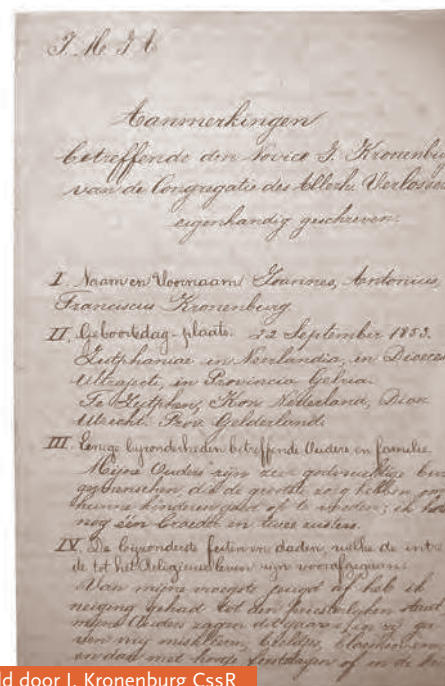 J. M. J. A
Aanmerkingen
betreffende den Novice J. Kronenbu
van de Congregatie des Allerh. Verlosse
eigenhandig geschreven.
I. Naam en Voornaam Joannes, Antonius,
Franciscus Kronenburg
II. Geboortedag-plaats. 22 September 1853.
Zutphaniae in Neerlandia, in Dioece
Ultraject, in Provincia Gelria.
Te Zutphen, Kon Nederland, Dioc
Utrecht. Prov. Gelderland.
III. Eenige bijzonderheden betreffende Ouders en familie.
Mijne Ouders zijn zeer godvruchtige bur
germenschen, die de grootste zorg hebben om
hunne kinderen goed op te voeden; ik heb
nog één broeder en twee zusters.
IV. De bijzonderste feiten en daden, welke de intre
de tot het Religieuse leven zijn voorafgegaan.
Van mijne vroegste jeugd af heb ik
neiging gehad tot den priesterlijken staat
mijne Ouders zagen dit gaarne
en mij
en dan met hooge feestdagen of in de
ld door J. Kronenburg CssR